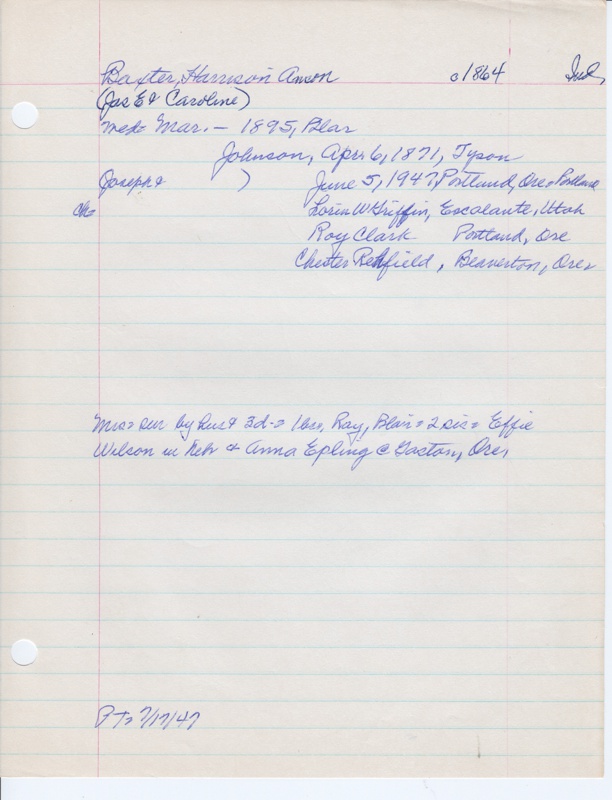 Baxter, Harrison Anson c1864 Ind,
(Jas E & Caroline)
med= Mar. - 1895, Blar
Johnson, Apr. 6, 1871, Tyson
(Joseph & ) June 5, 1947, Portland, Ore= Portland
ch= Loren W Griffin, Escalante, Utah
Roy Clark Portland, Ore
Chester Redfield, Beaverton, Ore=
Mrs= sur by hus & 3d-= 1 bro, Ray, Blair= 2 sis= Effie
Wilson in Nebr & Anna Epling @ Gaston, Ore,
PT= 7/17/47